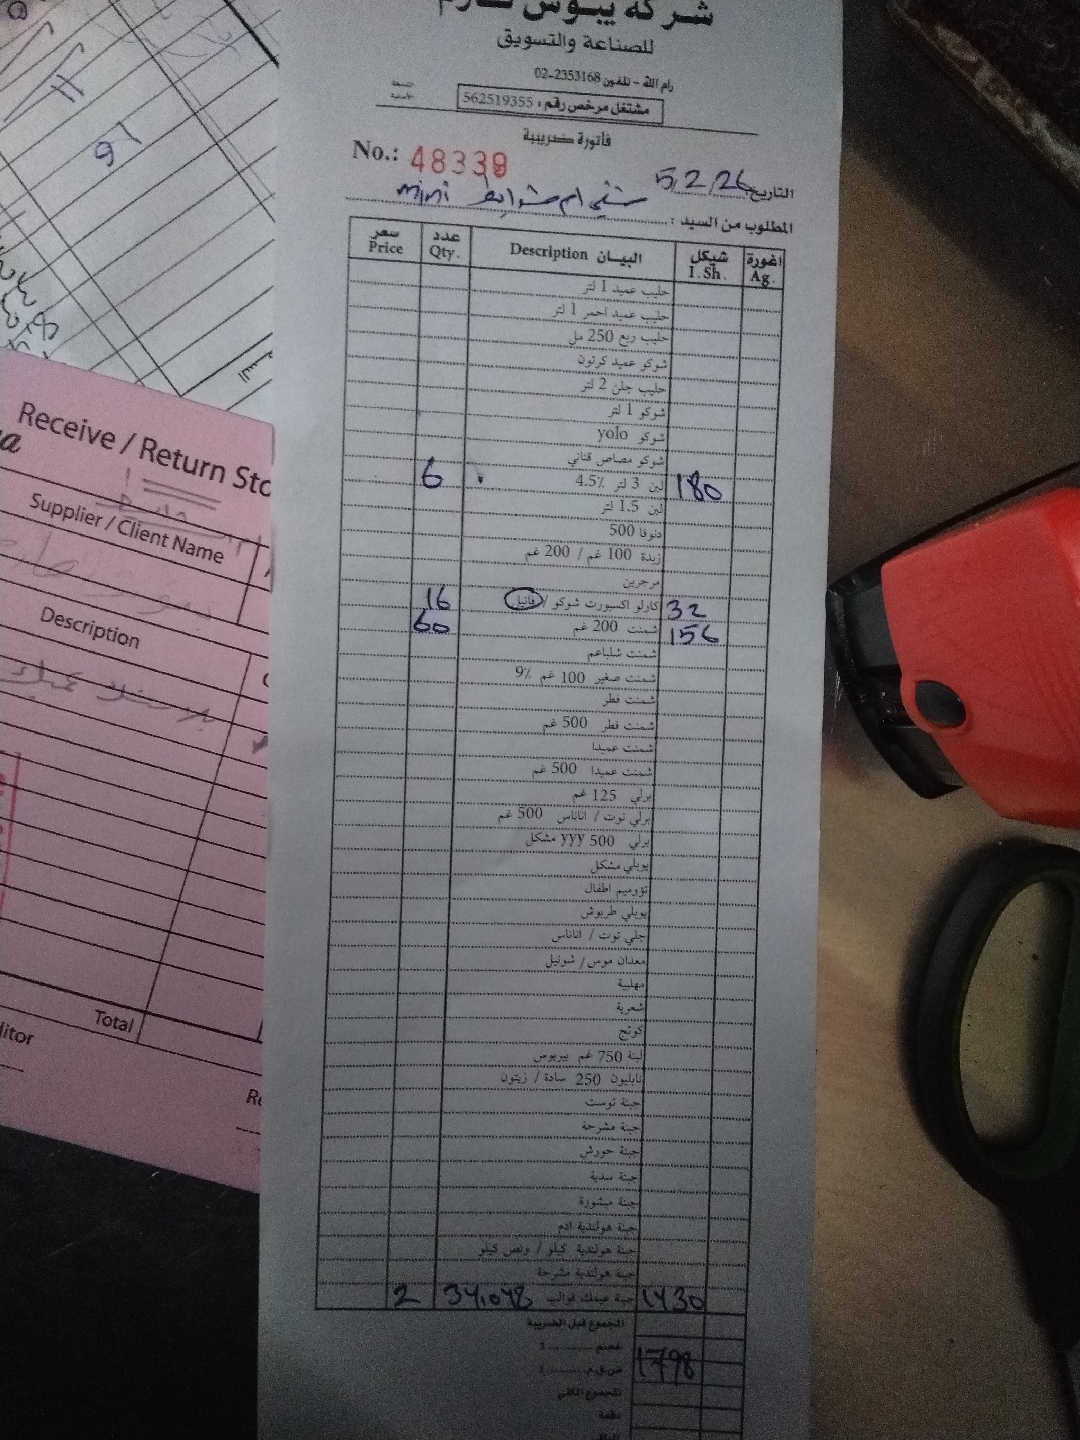 للصناعة والتسويق
رام الله - تلفون 02-2353168
مشتغل مرخص رقم: 562519355
فاتورة ضريبية
No.: 48339
التاريخ 5/2/26
المطلوب من السيد : mini
سعر Price عدد Qty. البيان Description شيكل I. Sh. اغورة Ag.
حليب عميد 1 لتر
حليب عميد احمر 1 لتر
حليب ربع 250 مل
شوكو عميد كرتون
حليب جلن 2 لتر
شوكو 1 لتر
شوكو yolo
شوكو مصاص قناني
6 لبن 3 لتر 4.5% 180
لبن 1.5 لتر
دنونا 500
زبدة 100 غم / 200 غم
مرجرين
16 كارلو اكسبورت شوكو / فانيل 32
60 شمنت 200 غم 156
شمنت شلباعم
شمنت صغير 100 غم 9%
شمنت فطر
شمنت فطر 500 غم
شمنت عميدا
شمنت عميدا 500 غم
برلي 125 غم
برلي توت / اناناس 500 غم
برلي 500 yyy مشكل
يوبلي مشكل
اطفال
يوبلي طربوش
جلي توت / اناناس
معدان موس / شونيل
مهلبية
شعرية
كوتج
لبنة 750 غم بيبوس
نابليون 250 سادة / زيتون
جبنة توست
جبنة مشرحة
جبنة حورش
جبنة سدية
جبنة مبشورة
جبنة هولندية ادم
جبنة هولندية كيلو / ونص كيلو
جبنة هولندية مشرحة
2 جبنة عيمك قوالب 34,048 1430
المجموع قبل الضريبة
خصم ............ %
ض.ق.م. ............ % 1798
المجموع الكلي
دفعة
16
Receive / Return Sto
Supplier / Client Name
Description
Total